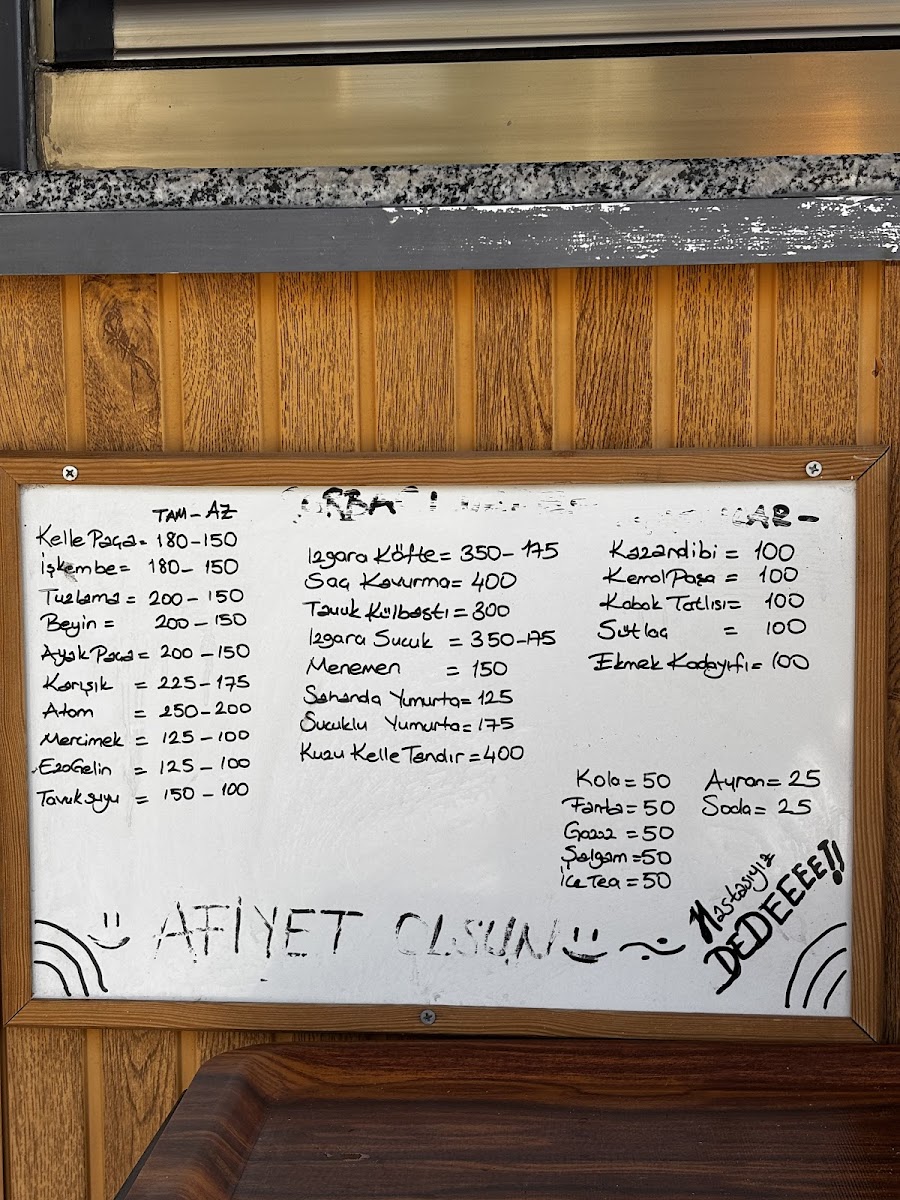 TAM - AZ
Kelle Paça = 180 - 150
İşkembe = 180 - 150
Tuzlama = 200 - 150
Beyin = 200 - 150
Ayak Paça = 200 - 150
Karışık = 225 - 175
Atom = 250 - 200
Mercimek = 125 - 100
EzoGelin = 125 - 100
Tavuk suyu = 150 - 100
Izgara Köfte = 350 - 175
Saç Kavurma = 400
Tavuk Külbastı = 300
Izgara Sucuk = 350 - 175
Menemen = 150
Sahanda Yumurta = 125
Sucuklu Yumurta = 175
Kuzu Kelle Tandır = 400
Kazandibi = 100
KemalPaşa = 100
Kabak Tatlısı = 100
Sütlaç = 100
Ekmek Kadayıfı = 100
Kola = 50
Fanta = 50
Gazoz = 50
Şalgam = 50
İce Tea = 50
Ayran = 25
Soda = 25
AFİYET OLSUN
Hastasıyız
DEDEEEE!!